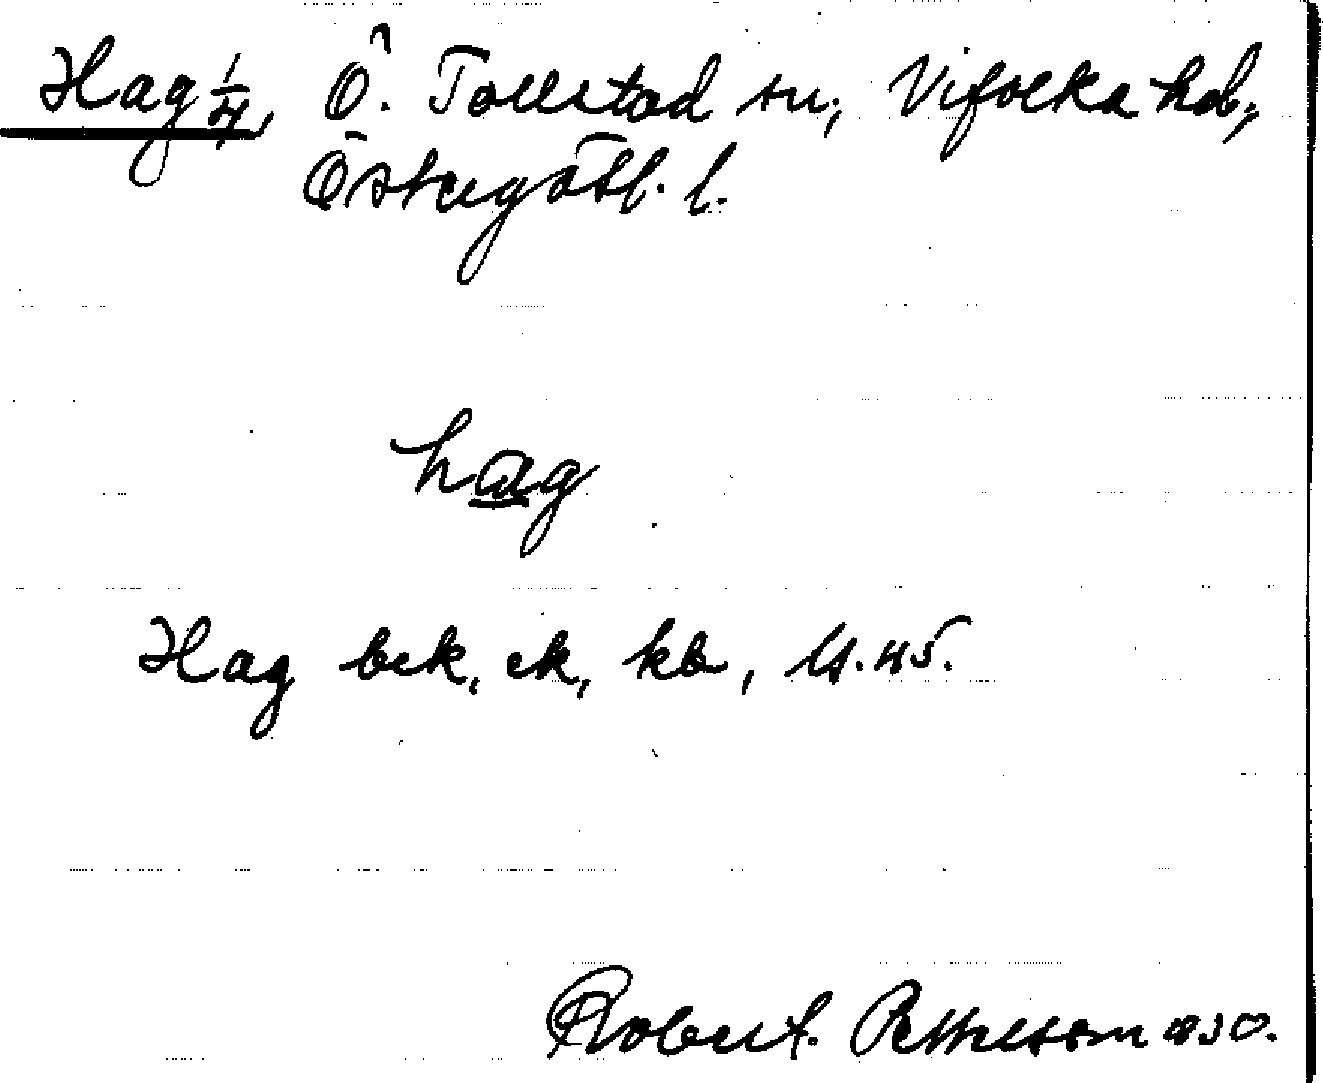 Hag 1/4, Ö. Tollstad sn, Vifolka hd,
Östergötl. l.
hag
Hag bck, ek, kb,
Robert Pettersson 1930.